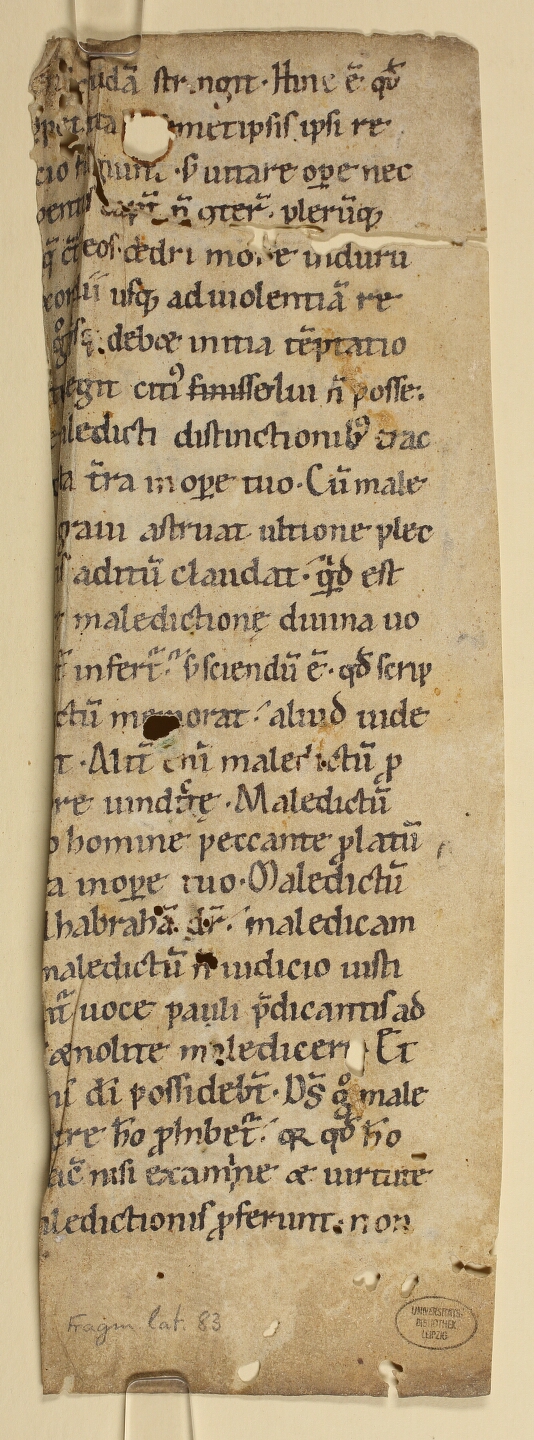 stringit. Hinc ē. qđ
metipsis ipsi re
ƀ uitare ope nec
n̄ ꝯteꝶ. pleruq;
cedri more indura
usq; ad uiolentiā re
debǣ initia tēptatio
egit citi' finisse solui ñ posse.
aledicti distinctionib' trac
ta t̄ra in opere tuo. Cū male
graui astruat ultione plec
aditū claudat. qd est
maledictione diuina uo
infert̄. ƀ sciendū ē. qđ scrip
ctū memorat. aliud iude
t. Aliđ eni maledictū ꝓ
re uindictę. Maledictū
homine peccante ꝓlatū
a in opere tuo. Maledictū
habrahā. dr̄. maledicam
maledictū ñ iudicio iusti
uoce pauli p̄dicantis ad
& nolite maledicere. Et
di possidebt̄. Ds̄ g° male
re ho ꝓhibet. qꝛ qđ ho
ac̄ nisi examine & uirtute
aledictionis ꝓferunt. non
Fragm. lat. 83
UNIVERSITÄTS
BIBLIOTHEK
LEIPZIG